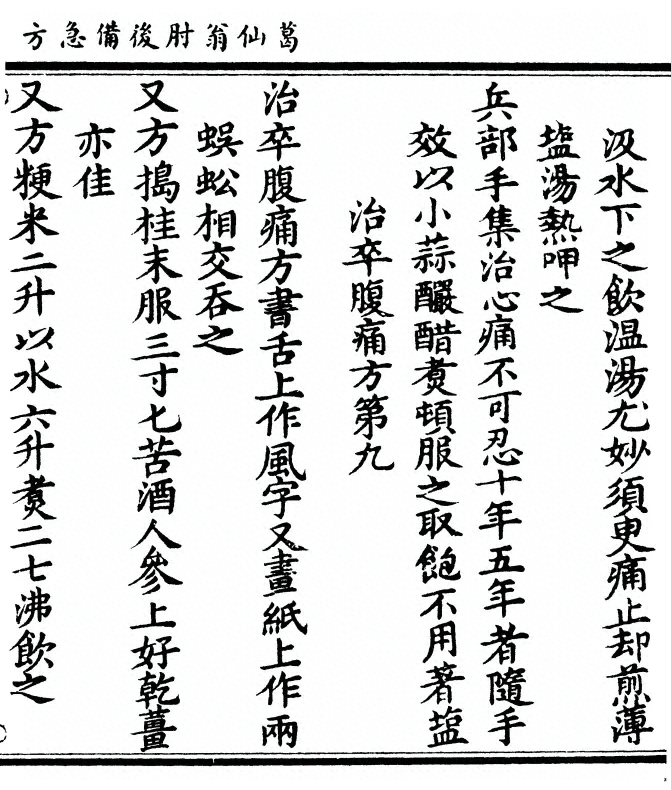 葛仙翁肘後備急方
汲水下之飲温湯尤妙須更痛止却煎薄
塩湯熱呷之
兵部手集治心痛不可忍十年五年者隨手
效以小蒜釅醋煑頓服之取飽不用著塩
治卒腹痛方第九
治卒腹痛方書舌上作風字又畫紙上作兩
蜈蚣相交吞之
又方搗桂末服三寸七苦酒人參上好乾薑
亦佳
又方粳米二升以水六升煑二七沸飲之